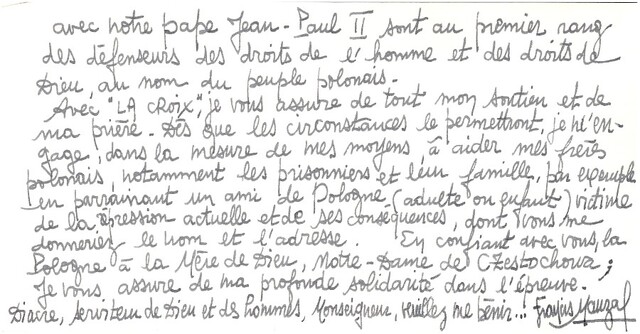 avec notre pape Jean-Paul II sont au premier rang
des défenseurs des droits de l'homme et des droits de
Dieu, au nom du peuple polonais.
Avec "LA CROIX", je vous assure de tout mon soutien et de
ma prière. Dès que les circonstances le permettront, je m'en-
gage, dans la mesure de mes moyens, à aider mes frères
polonais, notamment les prisonniers et leur famille, par exemple
en parrainant un ami de Pologne (adulte ou enfant) victime
de la répression actuelle et de ses conséquences, dont vous me
donneriez le nom et l'adresse. En confiant avec vous, la
Pologne à la Mère de Dieu, Notre-Dame de CZestochowa ;
Je vous assure de ma profonde solidarité dans l'épreuve.
Diacre, serviteur de Dieu et des hommes, Monseigneur, veuillez me bénir...